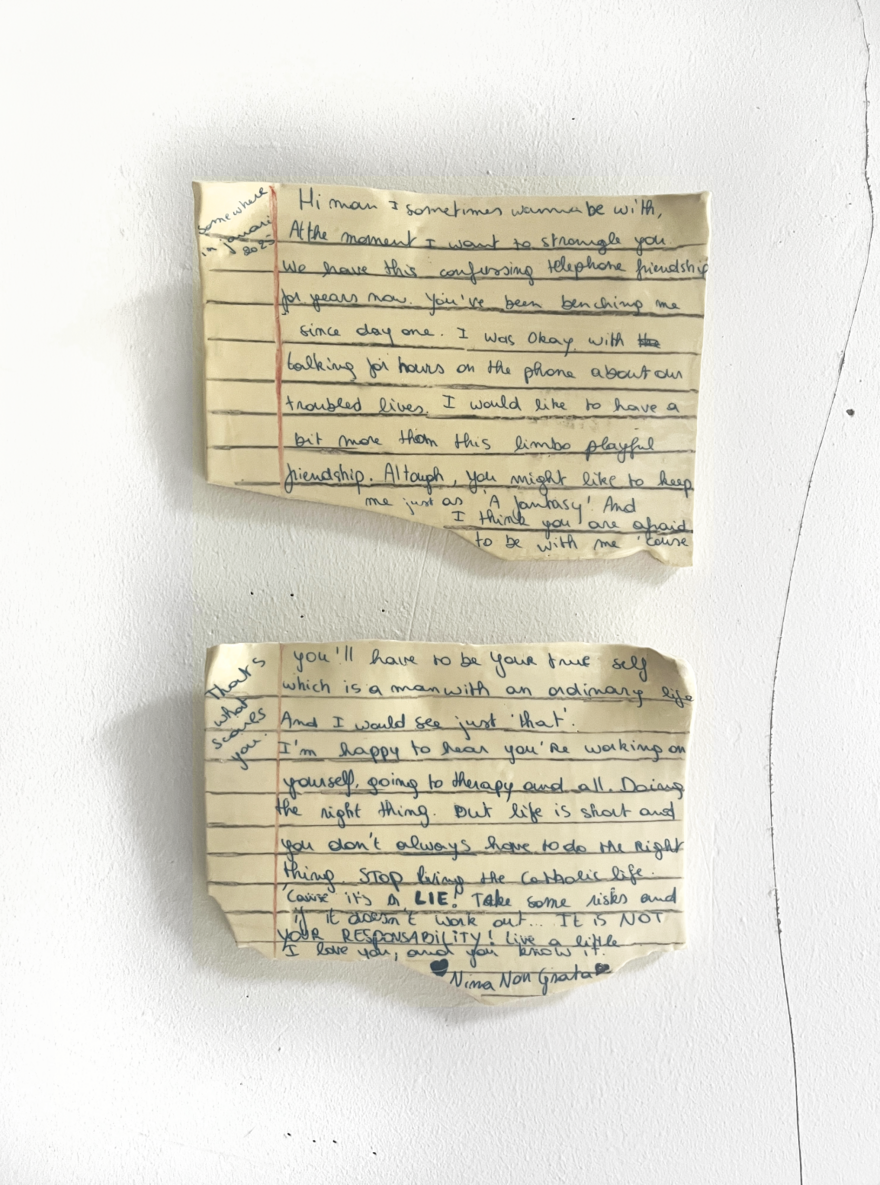 somewhere
in januari
2025
Hi man I sometimes wanna be with,
At the moment I want to strangle you
We have this confussing telephone friendship
for years now. You've been benching me
since day one. I was Okay with the
talking for hours on the phone about our
troubled lives. I would like to have a
bit more than this limbo playful
friendship. Altough, you might like to keep
me just as 'A fantasy'. And
I think you are afraid
to be with me 'cause
That's
what
scares
you.
you'll have to be your true self
which is a man with an ordinary life
And I would see just 'that'.
I'm happy to hear you're working on
yourself, going to therapy and all. Doing
the right thing. But life is short and
you don't always have to do the Right
thing. STOP living the Catholic life.
'Cause it's A LIE! Take some risks and
if it doesn't work out... IT IS NOT
YOUR RESPONSABILITY! Live a little
I love you, and you know it.
Nina Non Grata